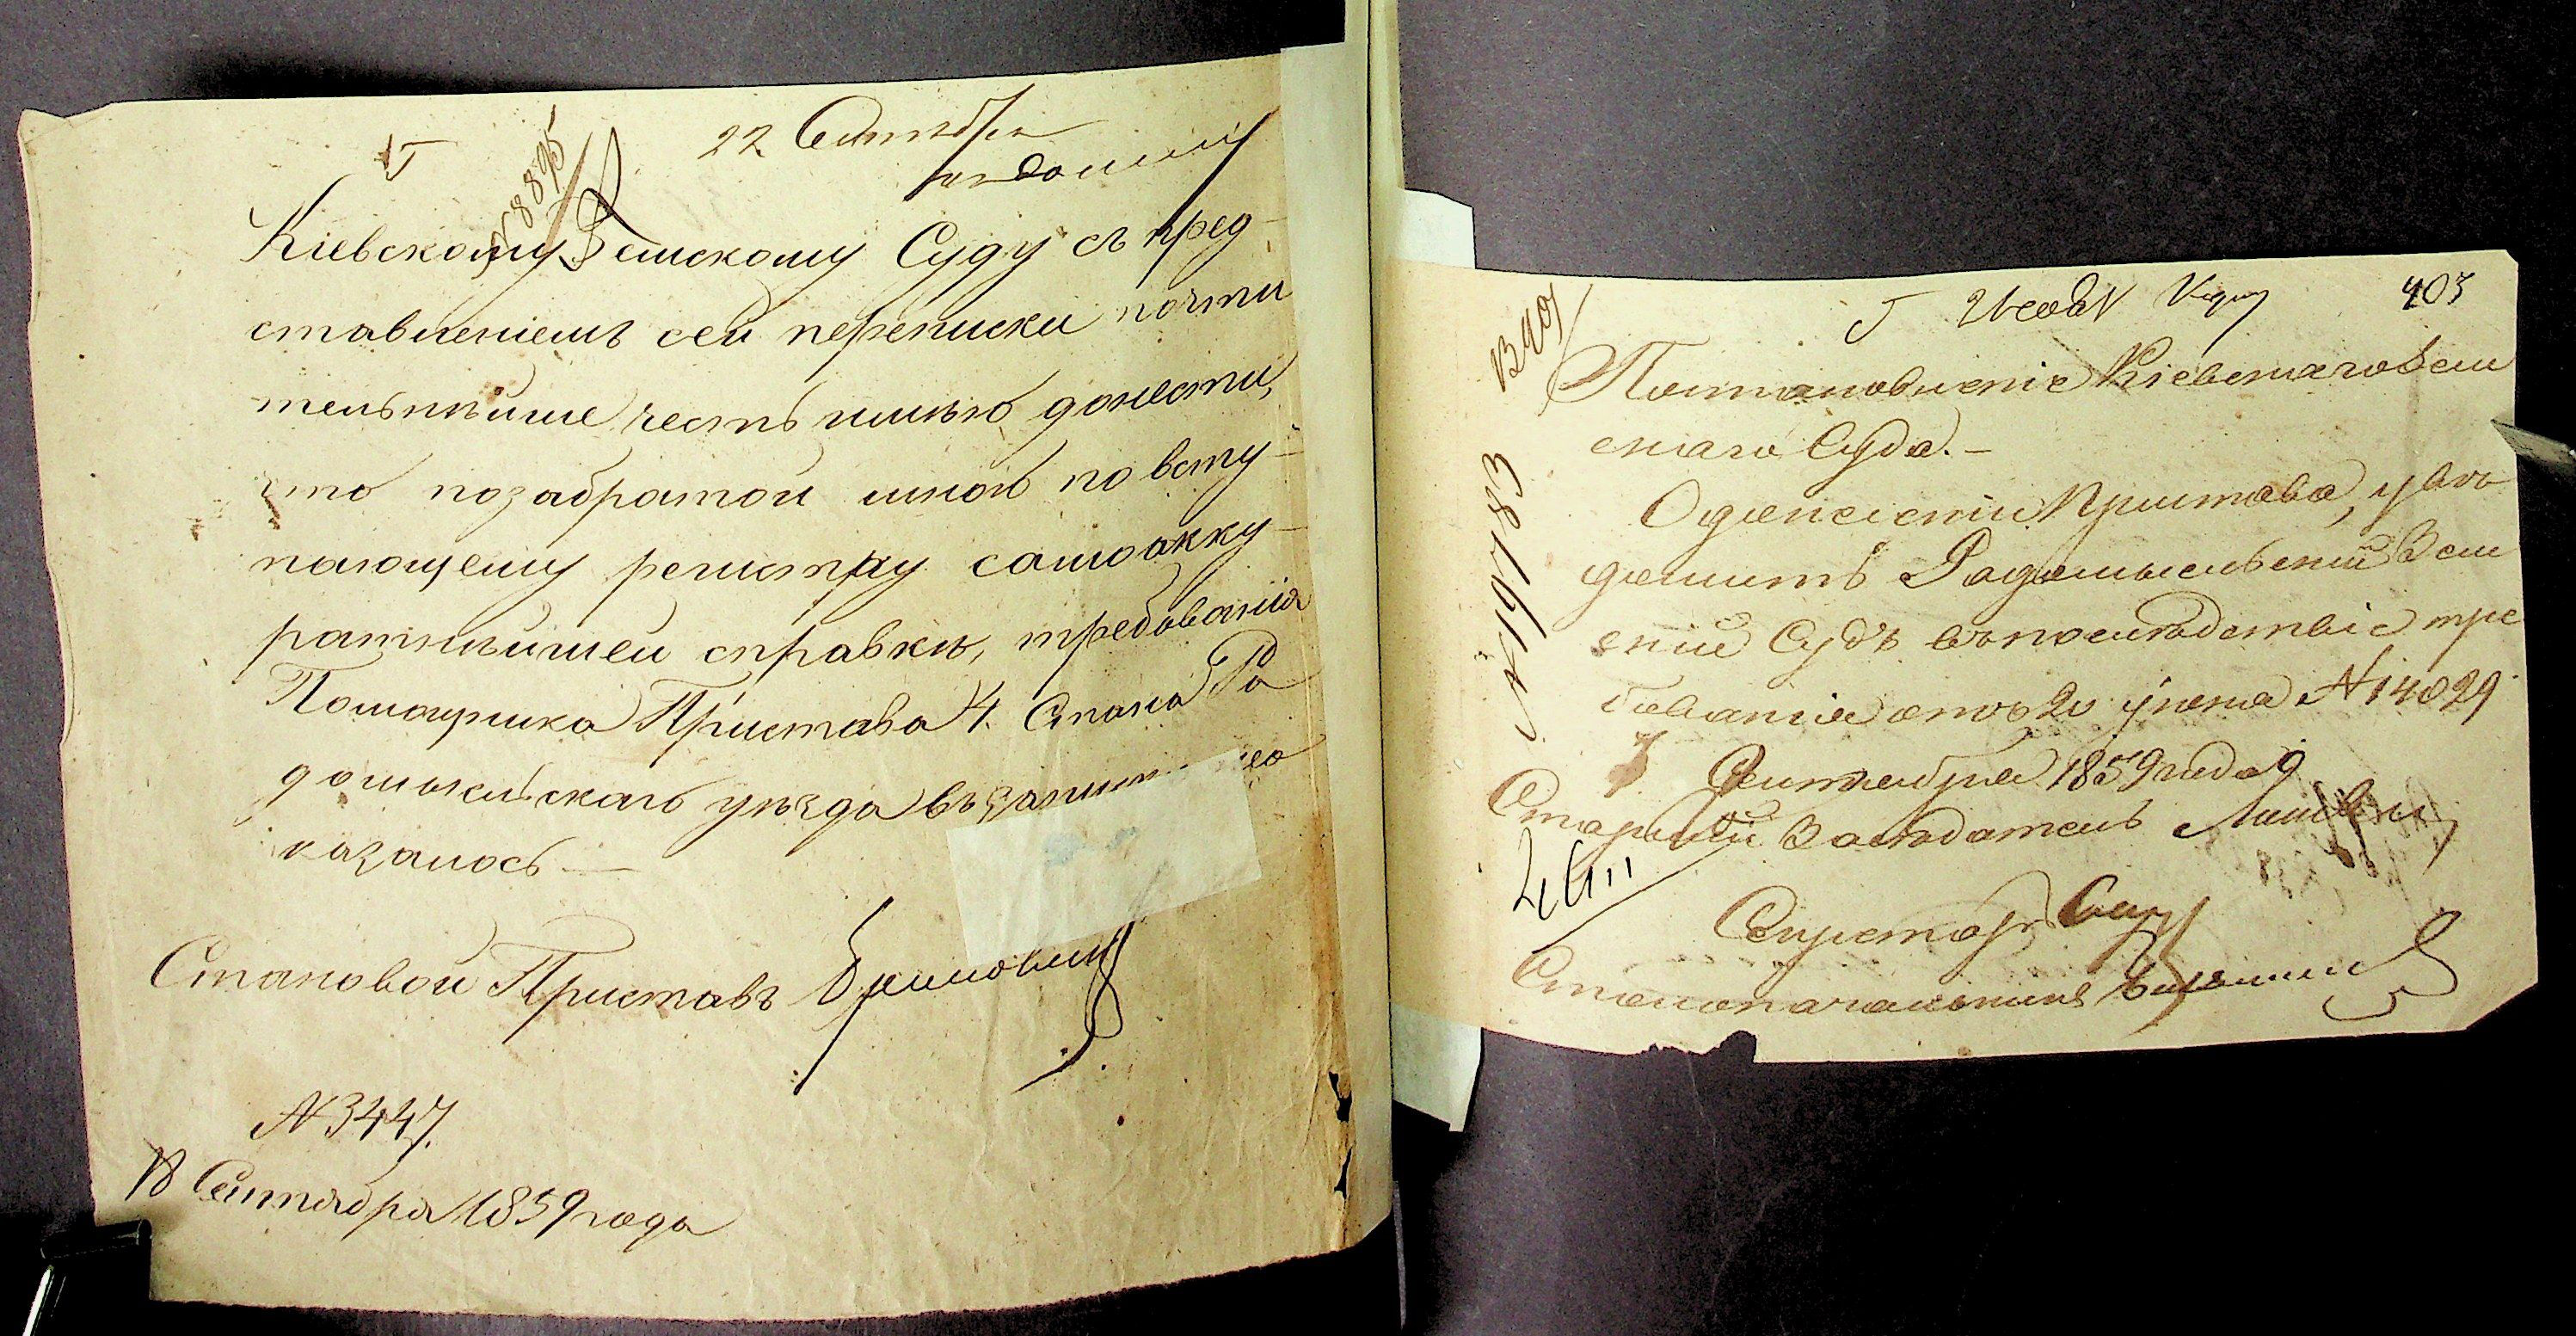 22 Сентября
№ 8895
Кіевскому Земскому Суду съ пред-
ставленіемъ сей переписки почти
тельнѣйше честь имѣю донести,
что позабратой мною по всту-
пающему регистру самоакку-
ратнѣйшей справкѣ, требованія
Помощника Пристава 4. Стана Ра
домысльскаго уѣзда въ
казалось —
Становой Приставъ
№ 3447.
18 Сентября 1859 года
403
Постановленіе Кіевскаго Зем
скаго Суда. —
О донесеніи Пристава, увѣ
домить Радомысльскій Зем
скій Судъ въ послѣдствіе тре
бованія отъ 20 іюня № 14029
Сентября 1859 года
Старшій Засѣдатель
Секретарь
Столоначальникъ
№ 19783